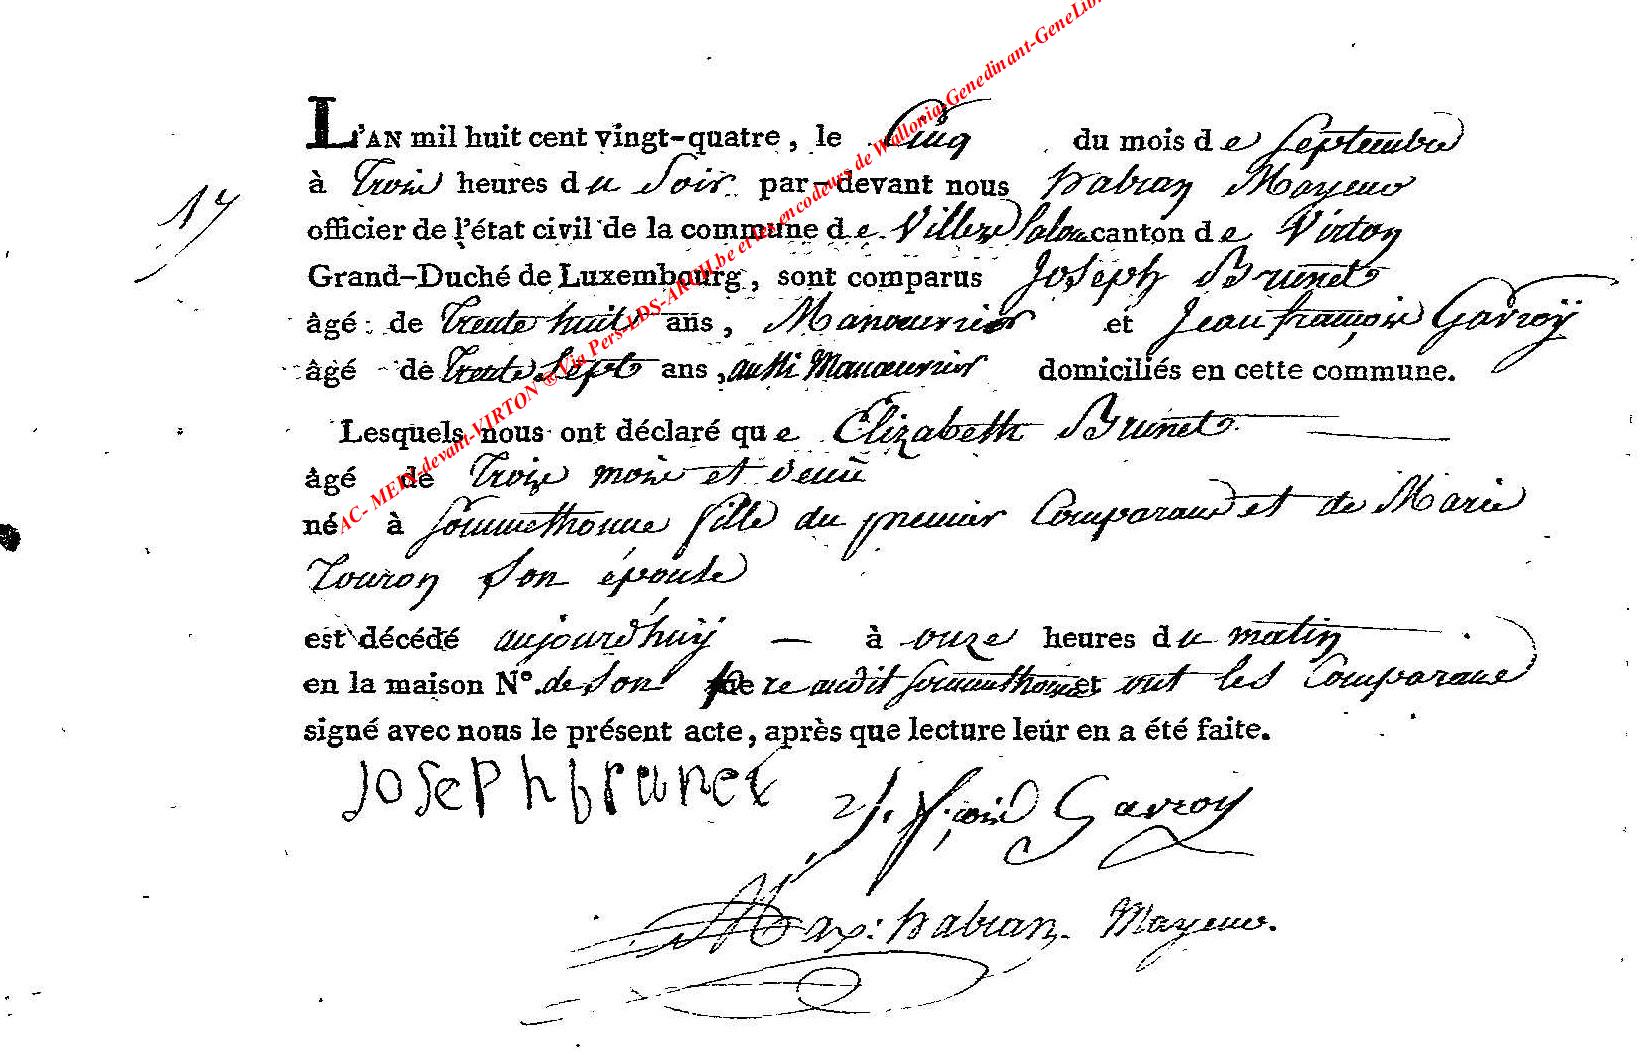 L'AN mil huit cent vingt-quatre, le Cinq du mois de Septembre
à Trois heures du Soir par-devant nous habran Mayeur
17
officier de l'état civil de la commune de Villers Laloue canton de Virton
Grand-Duché de Luxembourg, sont comparus Joseph Brunet
âgé de trente huit ans, Manœuvrier et Jean françois Gavroÿ
âgé de trente Sept ans, aussi Manœuvrier domiciliés en cette commune.
Lesquels nous ont déclaré que Elizabeth Brunet
âgé de Trois mois et demi
né à Sommethonne fille du premier Comparant et de Marie
Touron Son épouse
est décédé aujourd'huÿ — à onze heures du matin
en la maison N°. de Son pere audit Sommethonne et ont les Comparans
signé avec nous le présent acte, après que lecture leur en a été faite.
Joseph brunet
J. f.çois Gavroy
Max: habran. Mayeur.
AC- MEIX-devant-VIRTON @ Via Pers-LDS-ARCH.be et les encodeurs de Wallonia-Genedinant-GeneLib